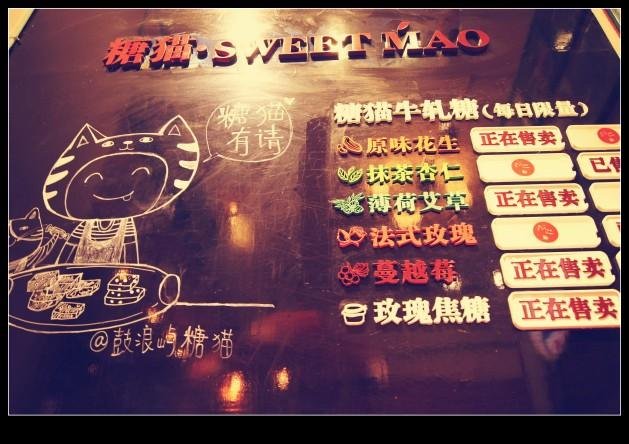 糖猫·SWEET MAO
糖猫
有请
糖猫牛轧糖(每日限量)
原味花生 正在售卖
抹茶杏仁 已售
薄荷艾草 正在售卖
法式玫瑰
蔓越莓 正在售卖
玫瑰焦糖 正在售卖
@鼓浪屿糖猫